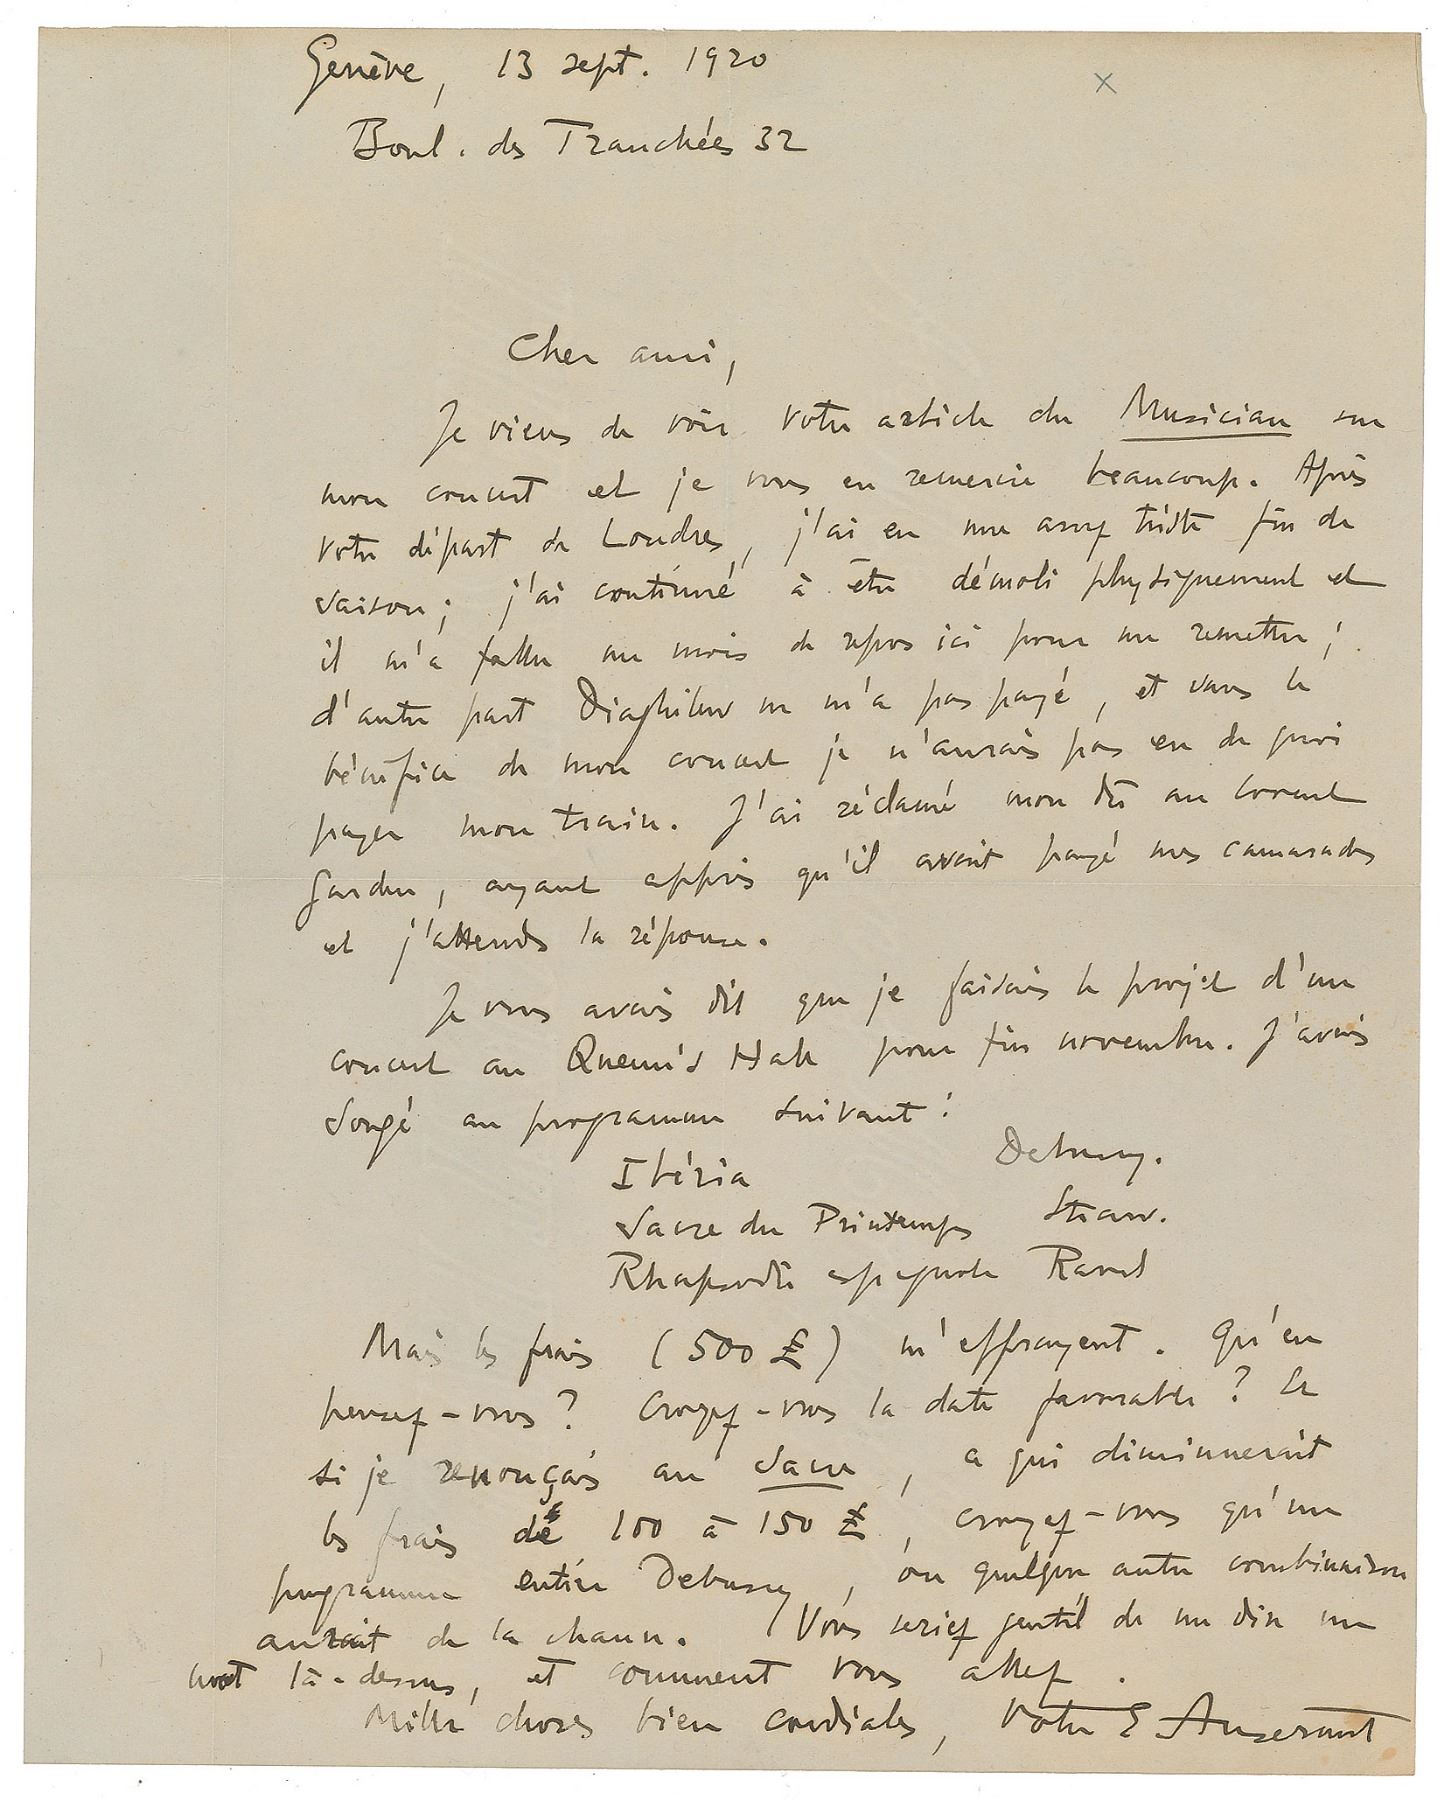 Genève, 13 sept. 1920
Boul. des Tranchées 32
Cher ami,
Je viens de voir votre article du Musician sur
mon concert et je vous en remercie beaucoup. Après
votre départ de Londres, j'ai eu une assez triste fin de
saison; j'ai continué à être démoli physiquement et
il m'a fallu un mois de repos ici pour me remettre;
d'autre part Diaghilew ne m'a pas payé, et sans le
bénéfice de mon concert je n'aurais pas eu de quoi
payer mon train. J'ai réclamé mon dû au Covent
Garden, ayant appris qu'il avait payé mes camarades
et j'attends la réponse.
Je vous avais dit que je faisais le projet d'un
concert au Queen's Hall pour fin novembre. J'avais
songé au programme suivant:
Ibéria Debussy.
Sacre du Printemps Straw.
Rhapsodie espagnole Ravel
Mais les frais (500 £) m'effrayent. Qu'en
pensez-vous? Croyez-vous la date favorable? Et
si je renonçais au Sacre, ce qui diminuerait
les frais de 100 à 150 £, croyez-vous qu'un
programme entier Debussy, ou quelque autre combinaison
aurait de la chance. Vous seriez gentil de me dire un
mot là-dessus, et comment vous allez.
Mille choses bien cordiales, votre E Ansermet